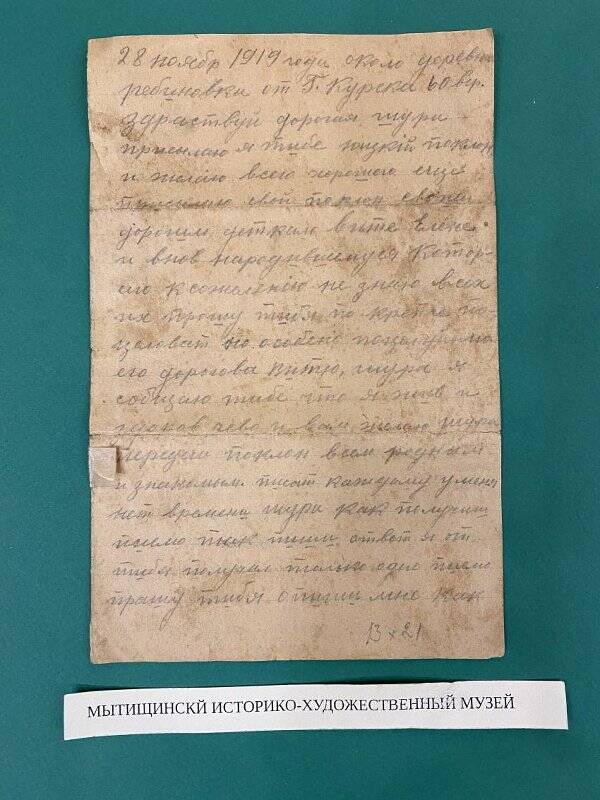 28 ноябр 1919 года около деревни
ребиновки от Г. Курска 60 вер.
здраствуй дорогая шура
присылаю я тибе низкій поклон
и желаю всево хорошого еще
присылаю свой поклон своим
дорогим деткам вите елене
и вновь народившемуся Котор-
аго к сожеленію не знаю всех
их прошу тибя по крепче по-
целоват но особено поцалуй мо
его дорогова витю, шура я
собщаю тибе что я жив и
здоров чево и вам желаю шура
передай поклон всем родным
и знакомым писат каждому у меня
нет времени шура как получиш
писмо так пиши ответ я от
тибя получил только одно писмо
прашу тибя опиши мне как
13 x 21
МЫТИЩИНСКЙ ИСТОРИКО-ХУДОЖЕСТВЕННЫЙ МУЗЕЙ